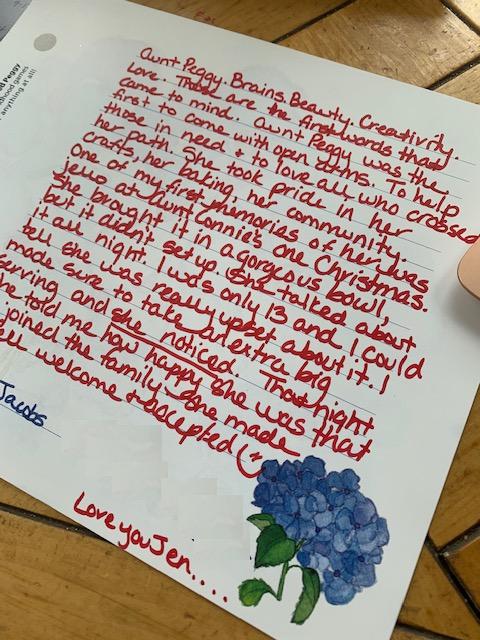 d Peggy
dhood games
anything at all!
Aunt Peggy. Brains. Beauty. Creativity.
Love. Those are the first words that
came to mind. Aunt Peggy was the
first to come with open arms. To help
those in need + to love all who crossed
her path. She took pride in her
crafts, her baking, her community.
One of my first memories of her was
jello at Aunt Connie's one Christmas.
She brought it in a gorgeous bowl,
but it didn't set up. She talked about
it all night. I was only 13 and I could
tell she was really upset about it. I
made sure to take an extra big
erving and she noticed. That night
he told me how happy she was that
joined the family. She made
welcome + accepted (:
Jacobs
Love you Jen....